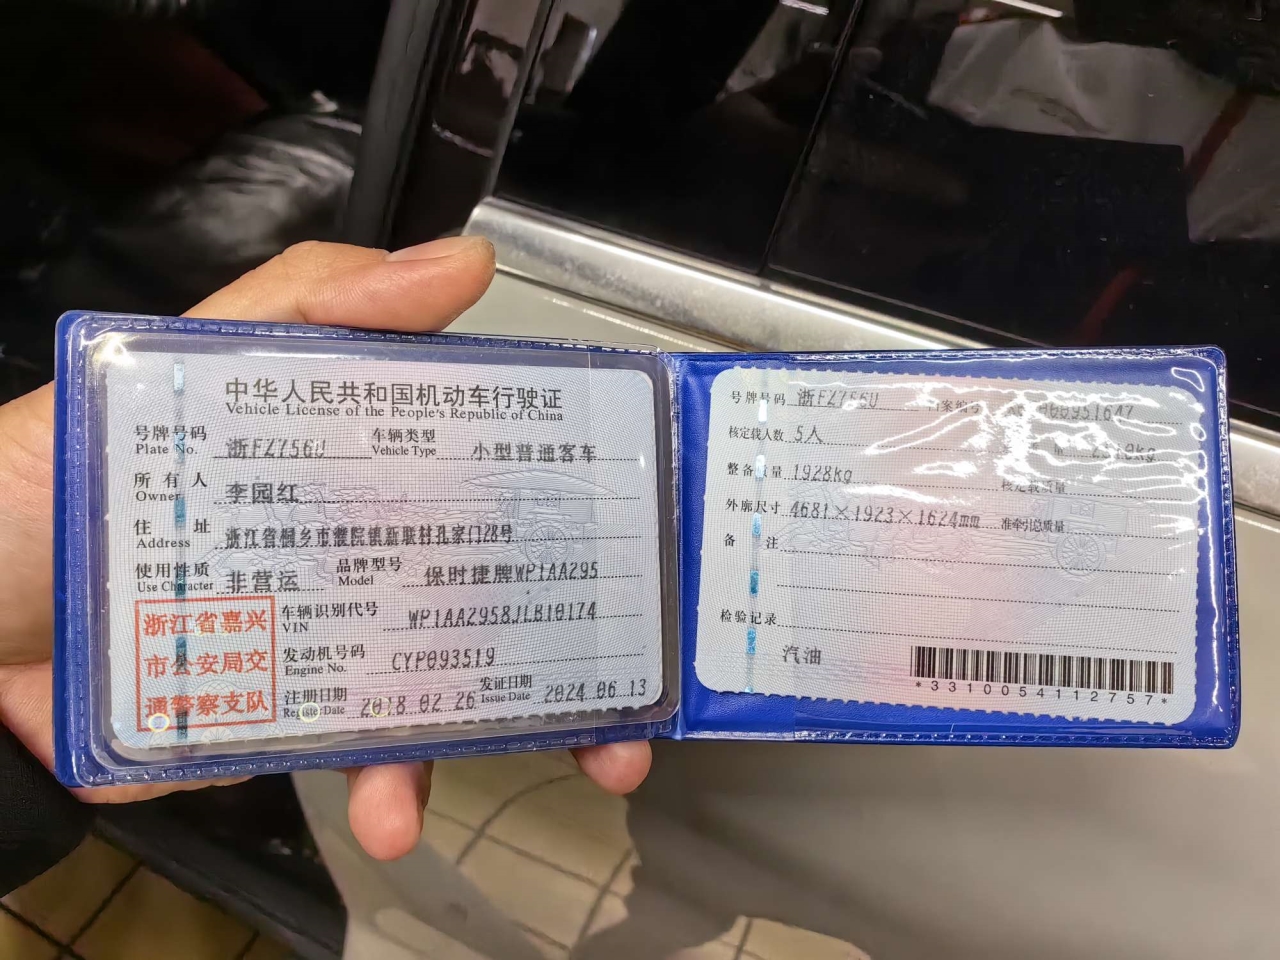 中华人民共和国机动车行驶证
Vehicle License of the People's Republic of China
号牌号码 浙FZ756U 车辆类型 小型普通客车
Plate No. Vehicle Type
所有人 李园红
Owner
住址 浙江省桐乡市濮院镇新联村孔家门28号
Address
使用性质 非营运 品牌型号 保时捷牌WP1AA295
Use Character Model
浙江省嘉兴
市公安局交
通警察支队
车辆识别代号 WP1AA2958JLB10174
VIN
发动机号码 CYP093519
Engine No.
注册日期 2018.02.26 发证日期 2024.06.13
Register Date Issue Date
号牌号码 浙FZ756U 档案编号
核定载人数 5人
整备质量 1928kg 核定载质量
外廓尺寸 4681×1923×1624mm 准牵引总质量
备注
检验记录
汽油
*3310054112757*